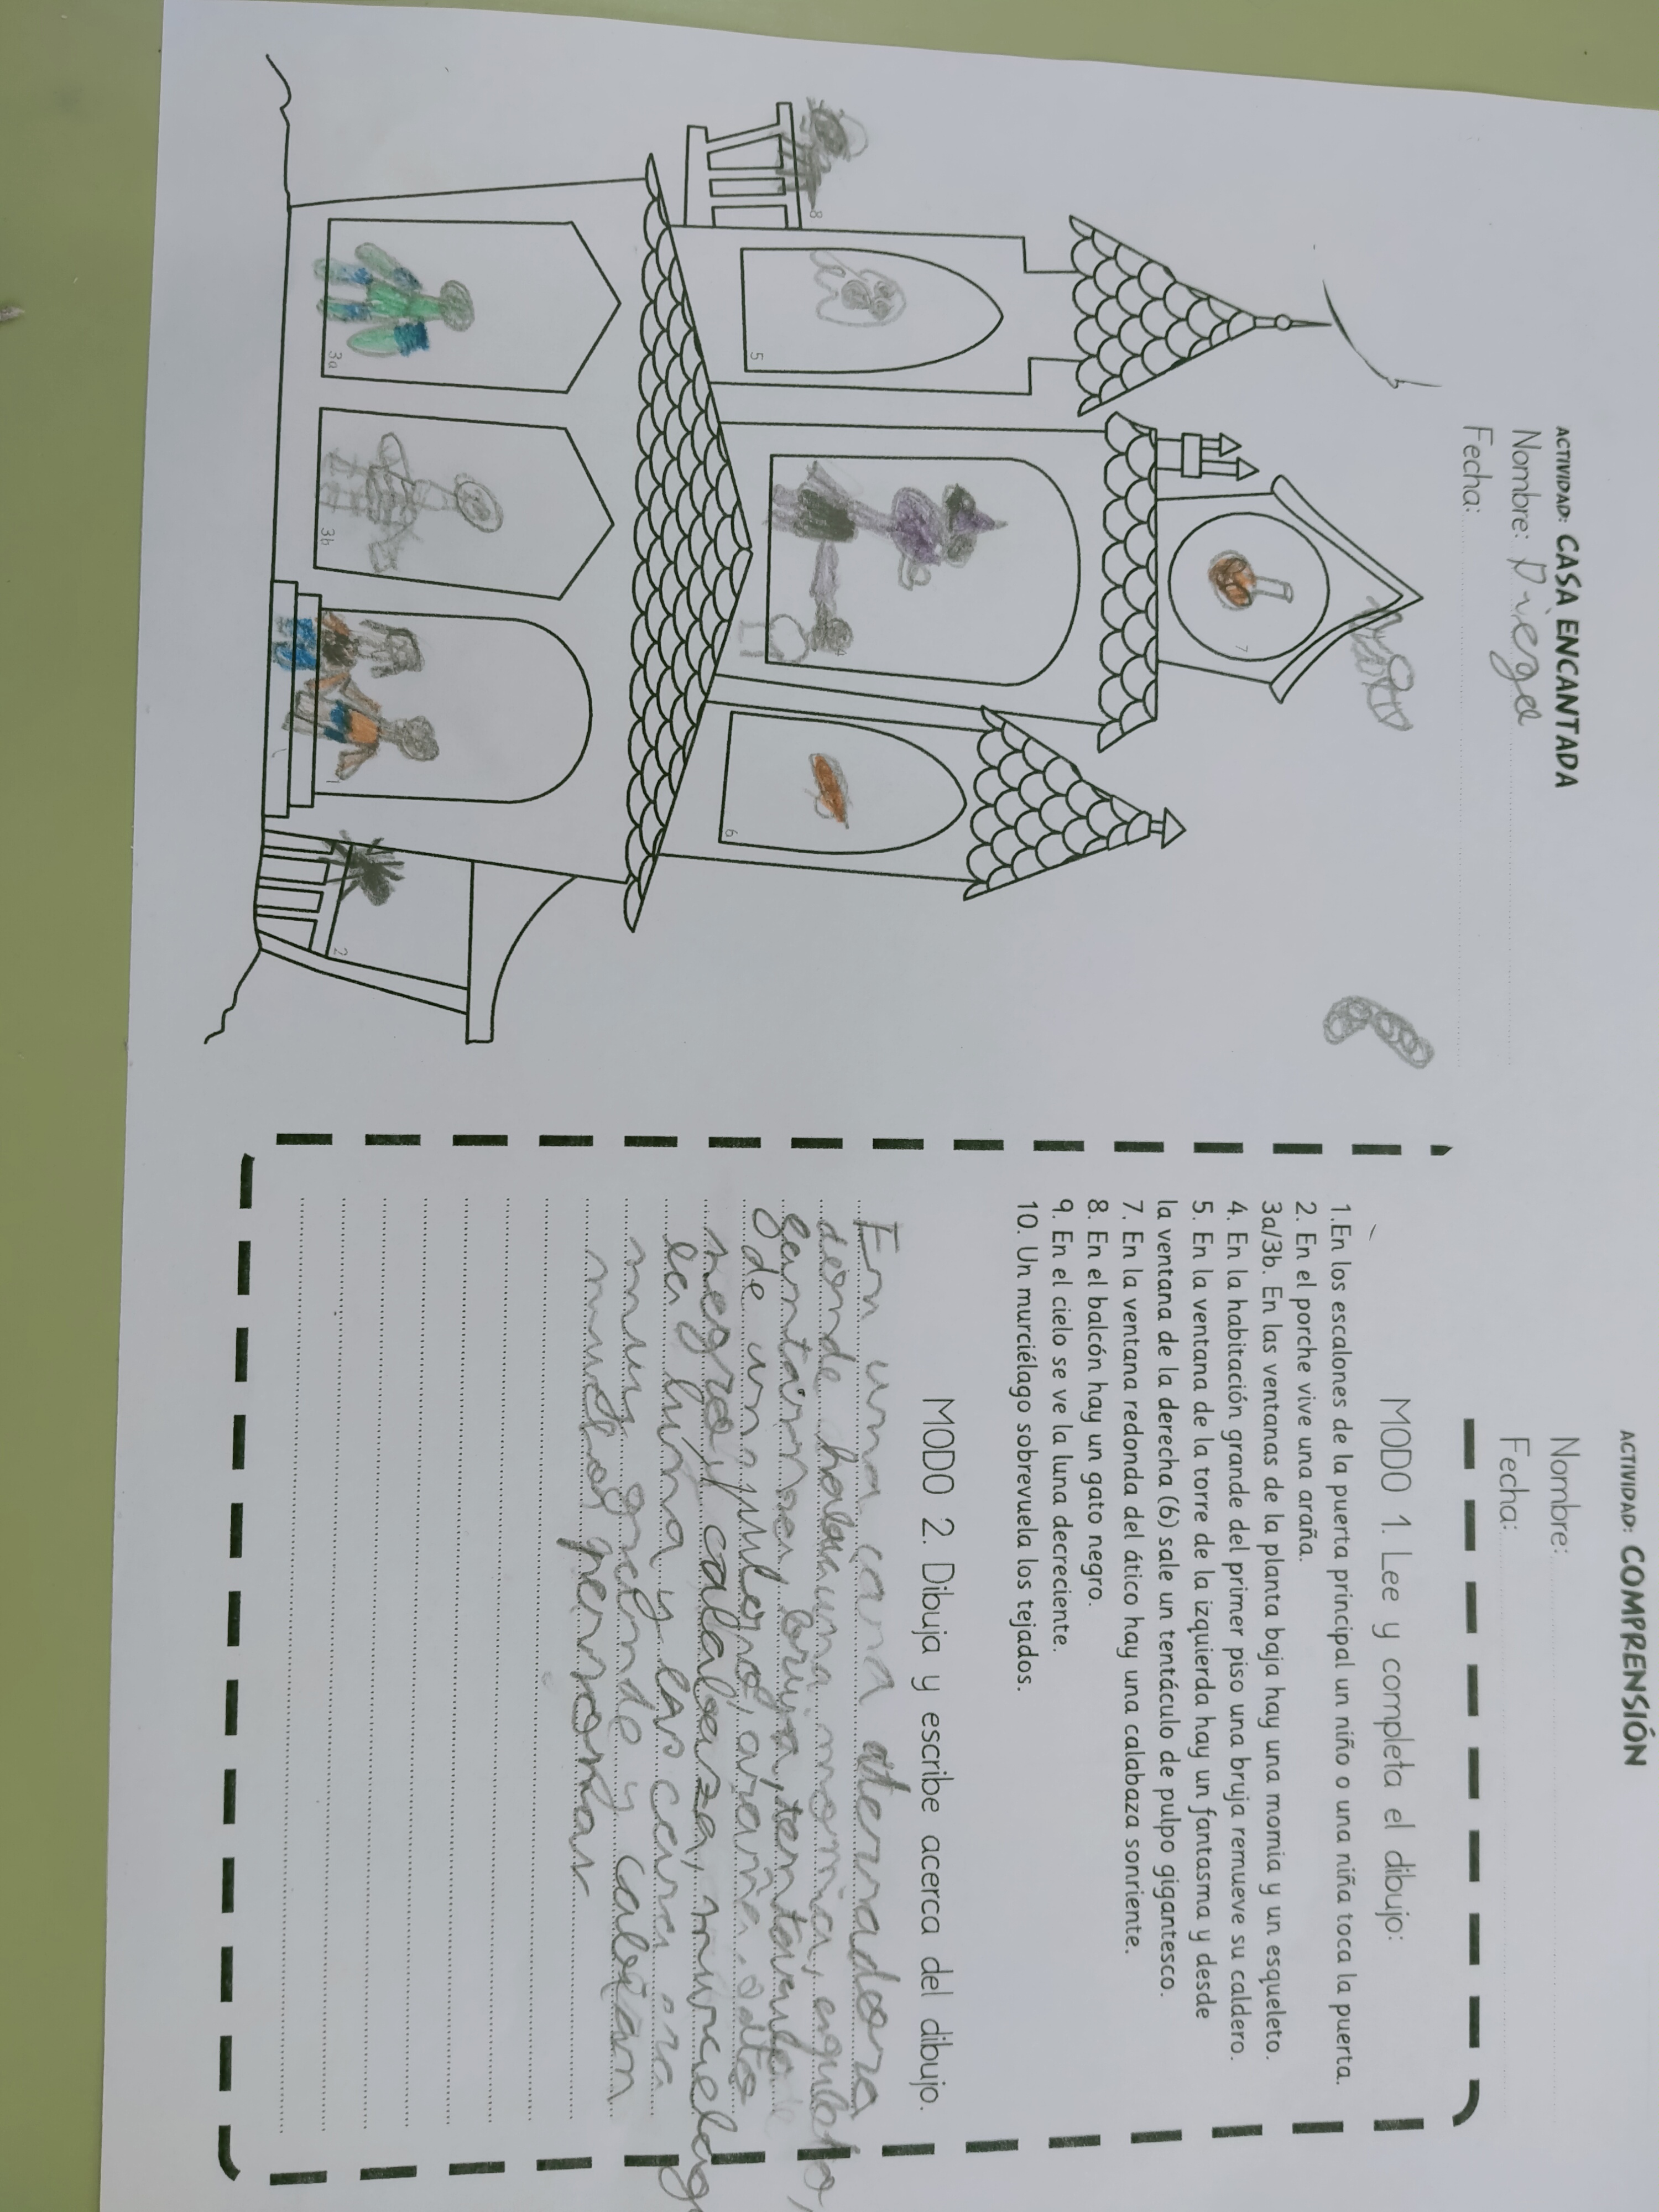 ACTIVIDAD: CASA ENCANTADA
Nombre: Diego
Fecha:
8
5
7
4
6
3a
3b
1
2
ACTIVIDAD: COMPRENSIÓN
Nombre:
Fecha:
MODO 1. Lee y completa el dibujo:
1.En los escalones de la puerta principal un niño o una niña toca la puerta.
2. En el porche vive una araña.
3a/3b. En las ventanas de la planta baja hay una momia y un esqueleto.
4. En la habitación grande del primer piso una bruja remueve su caldero.
5. En la ventana de la torre de la izquierda hay un fantasma y desde
la ventana de la derecha (6) sale un tentáculo de pulpo gigantesco.
7. En la ventana redonda del ático hay una calabaza sonriente.
8. En el balcón hay un gato negro.
9. En el cielo se ve la luna decreciente.
10. Un murciélago sobrevuela los tejados.
MODO 2. Dibuja y escribe acerca del dibujo.
En una casa aterradora
donde habia una momia,
bruja, tentaculo
de un pulpo, araña, gato
negro, calabaza, murcielago
la luna y las casa era
muy grande y cabian
muchas personas